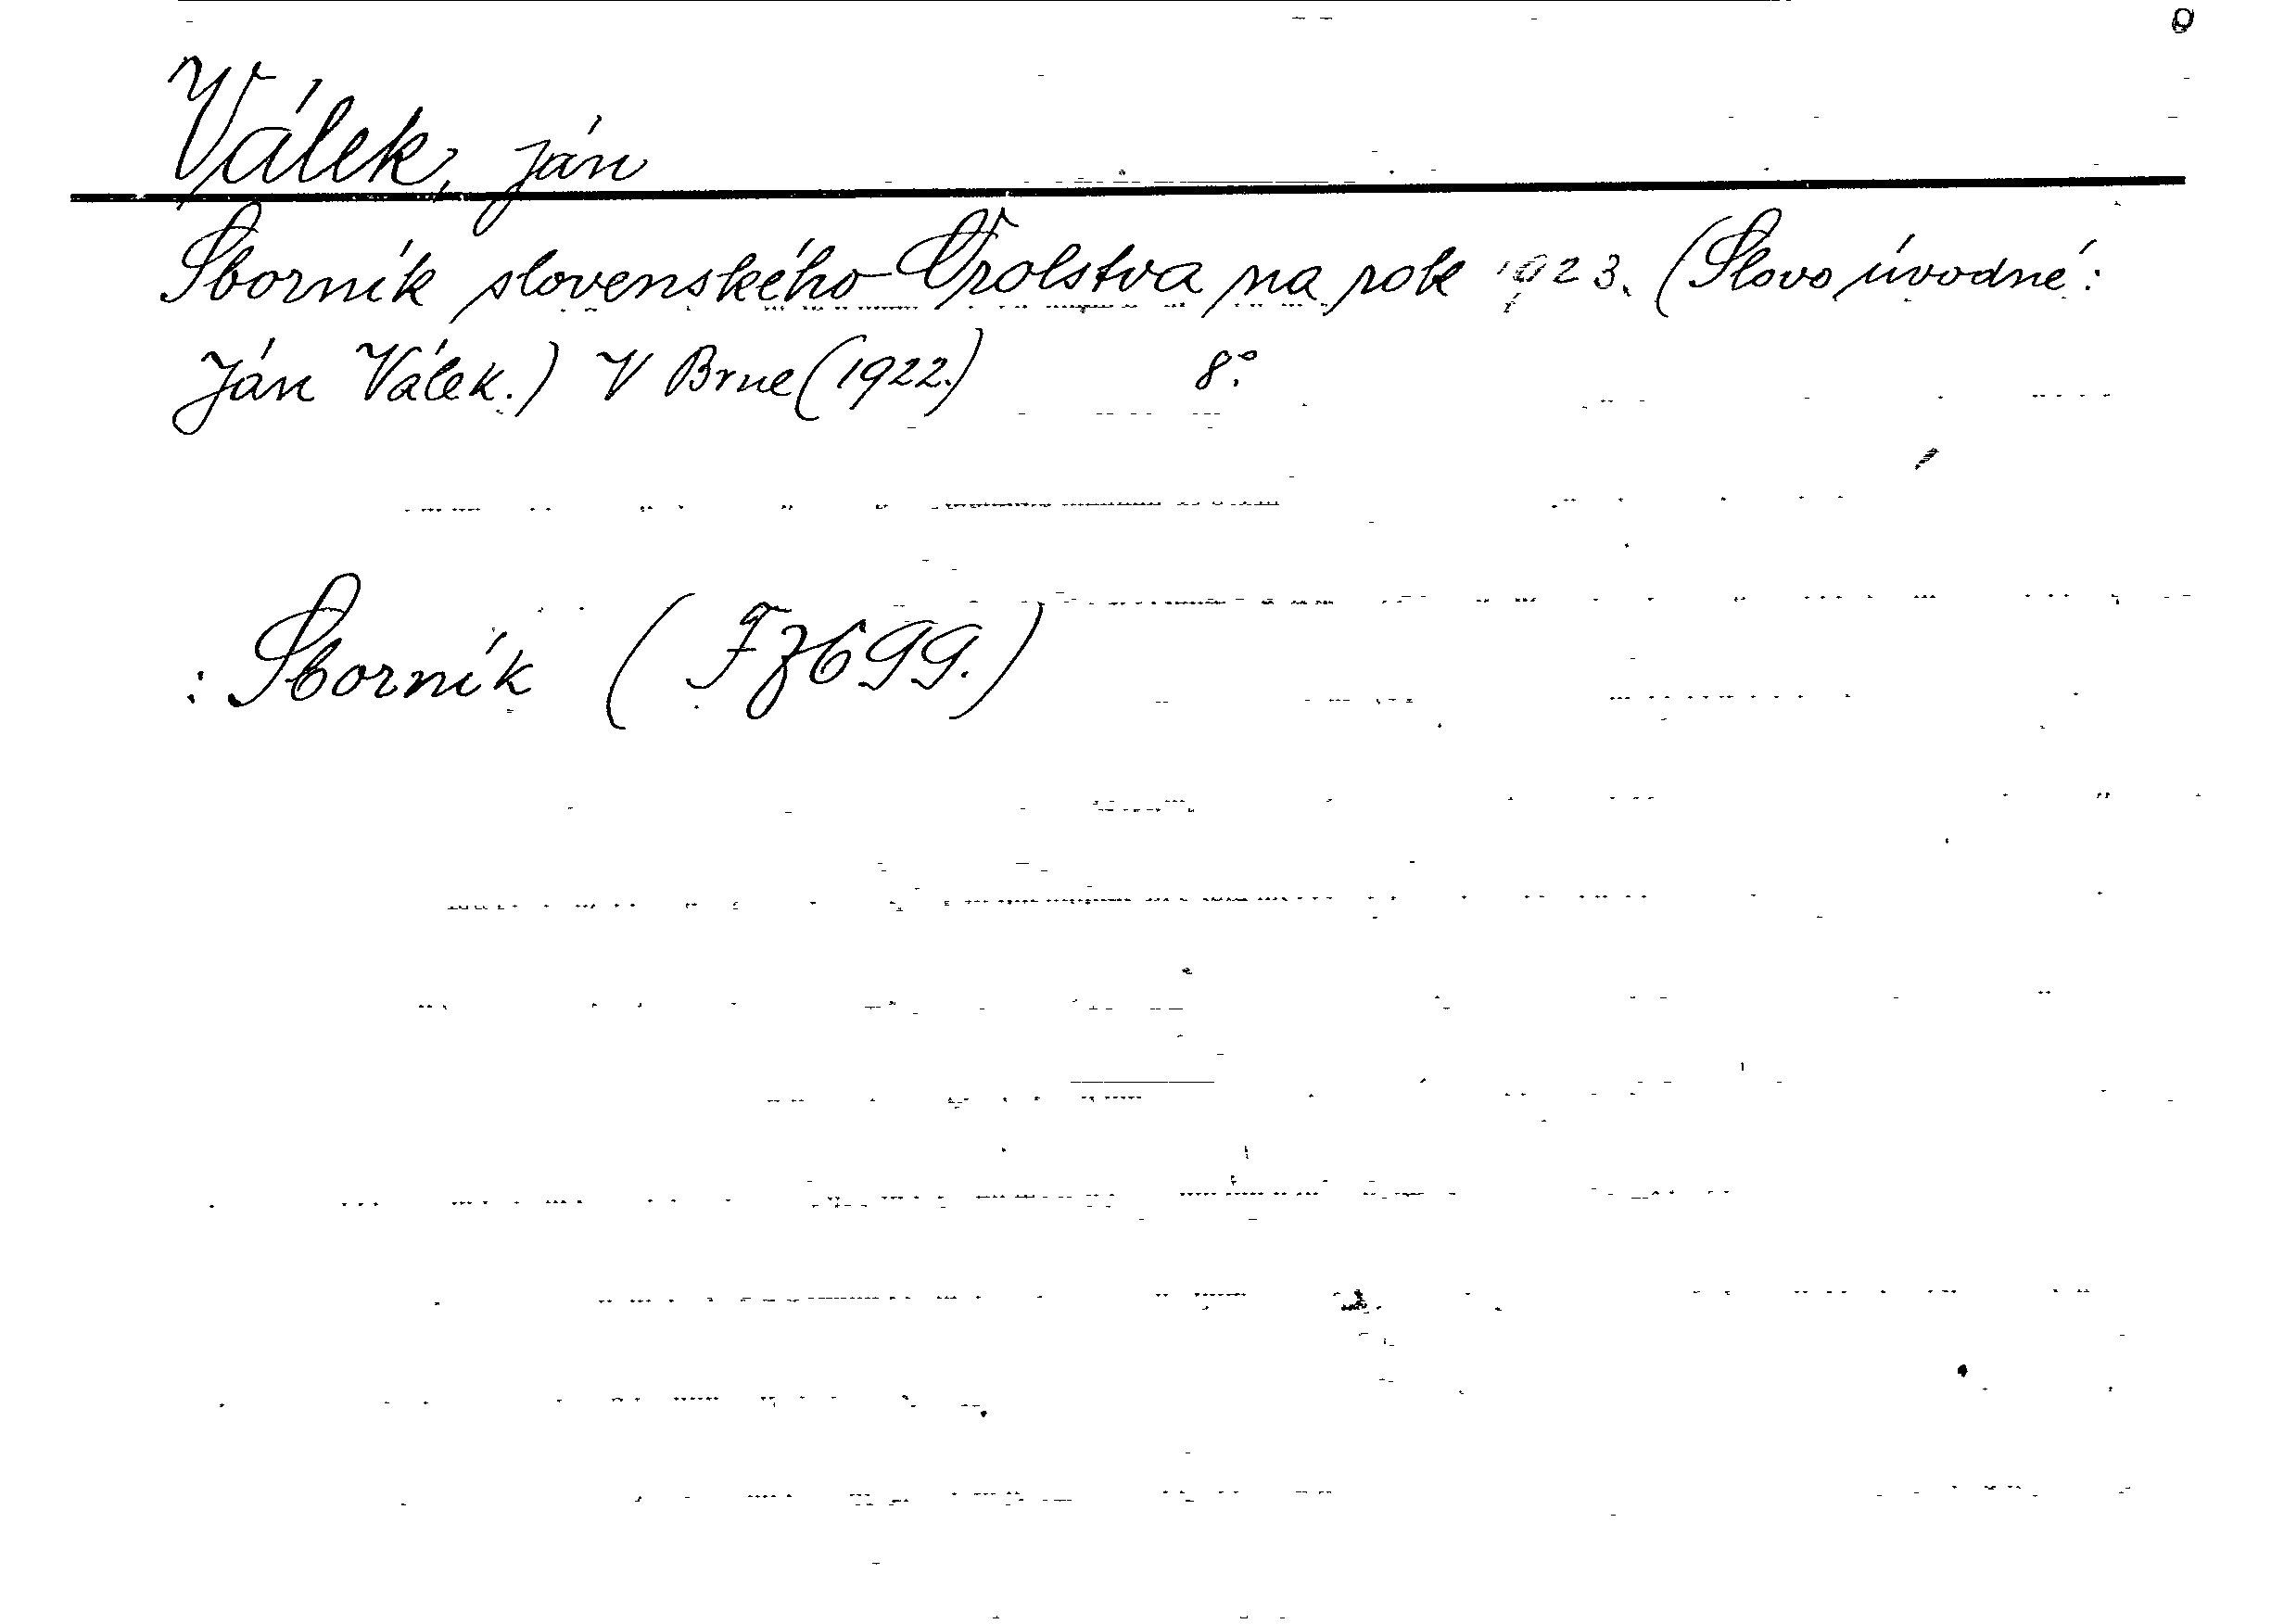 Válek, Ján
Sborník slovenského Orolstva na rok 1923. (Slovo úvodné:
Ján Válek.) V Brne (1922.) 8°.
: Sborník ( Fz699.)